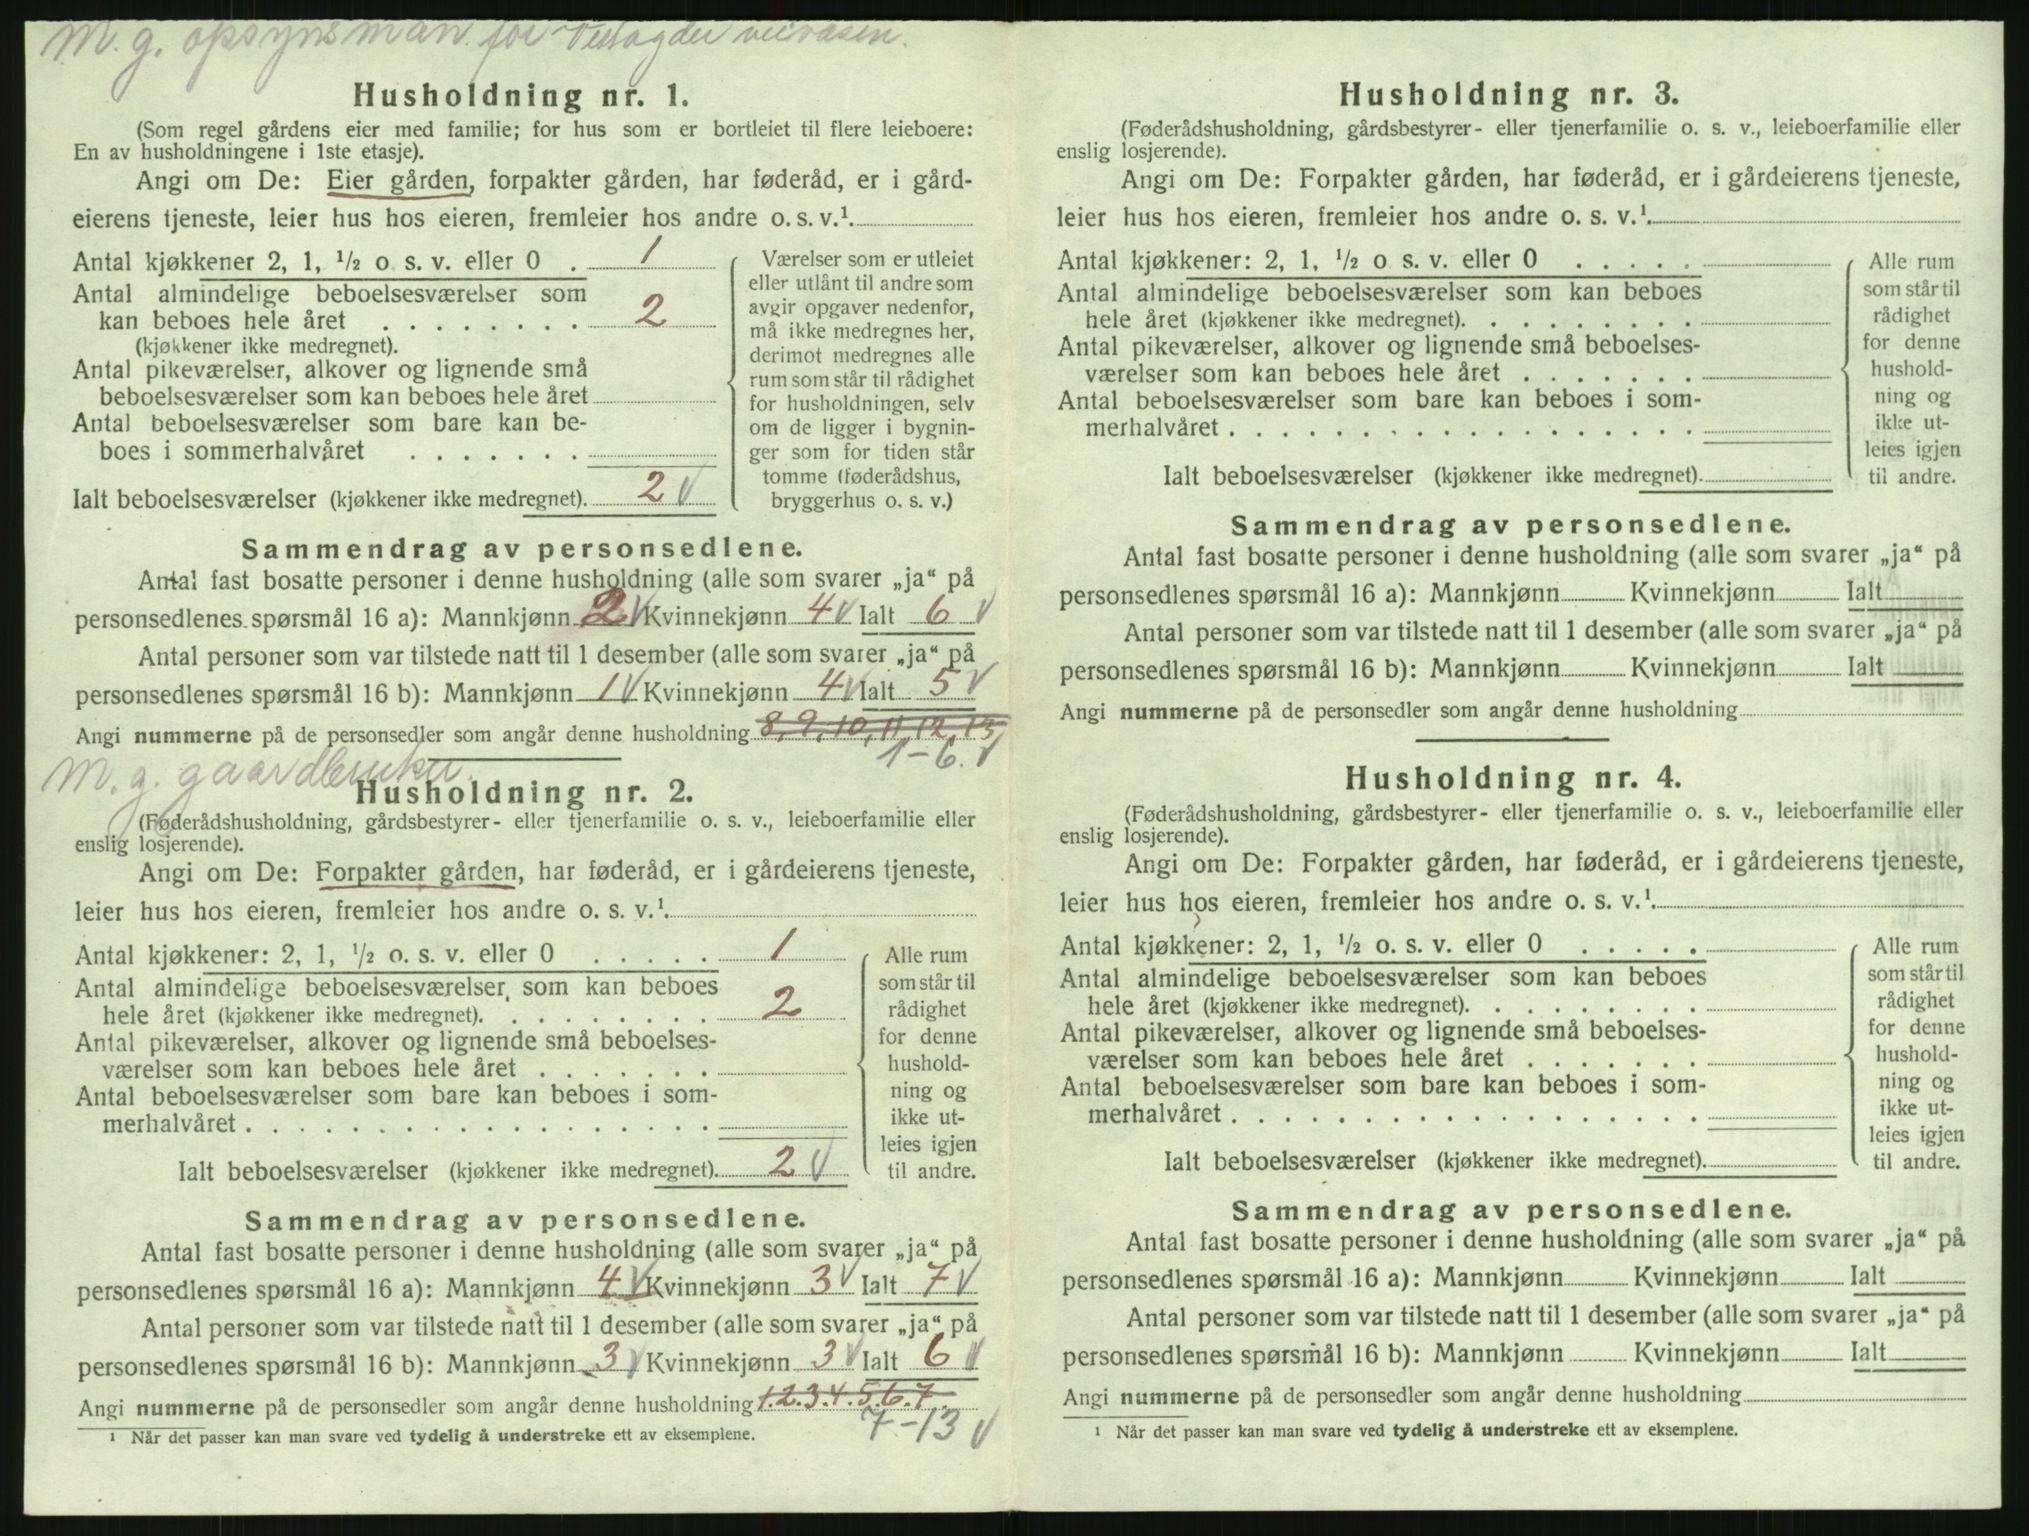 M. g. opsynsman for Vestagder veivæsen.
Husholdning nr. 1.
(Som regel gårdens eier med familie; for hus som er bortleiet til flere leieboere:
En av husholdningene i 1ste etasje).
Angi om De: Eier gården, forpakter gården, har føderåd, er i gård-
eierens tjeneste, leier hus hos eieren, fremleier hos andre o. s. v.¹.
Antal kjøkkener 2, 1, ½ o. s. v. eller 0 . 1
Antal almindelige beboelsesværelser som
kan beboes hele året . . . . . . . . 2
(kjøkkener ikke medregnet).
Antal pikeværelser, alkover og lignende små
beboelsesværelser som kan beboes hele året
Antal beboelsesværelser som bare kan be-
boes i sommerhalvåret . . . . . . .
Ialt beboelsesværelser (kjøkkener ikke medregnet). 2 √
Værelser som er utleiet
eller utlånt til andre som
avgir opgaver nedenfor,
må ikke medregnes her,
derimot medregnes alle
rum som står til rådighet
for husholdningen, selv
om de ligger i bygnin-
ger som for tiden står
tomme (føderådshus,
bryggerhus o. s. v.)
Sammendrag av personsedlene.
Antal fast bosatte personer i denne husholdning (alle som svarer „ja“ på
personsedlenes spørsmål 16 a): Mannkjønn 2 √ Kvinnekjønn 4 √ Ialt 6 √
Antal personer som var tilstede natt til 1 desember (alle som svarer „ja“ på
personsedlenes spørsmål 16 b): Mannkjønn 1 √ Kvinnekjønn 4 √ Ialt 5 √
Angi nummerne på de personsedler som angår denne husholdning 8, 9, 10, 11, 12, 13
1-6. √
M. g. gaardbruker.
Husholdning nr. 2.
(Føderådshusholdning, gårdsbestyrer- eller tjenerfamilie o. s. v., leieboerfamilie eller
enslig losjerende).
Angi om De: Forpakter gården, har føderåd, er i gårdeierens tjeneste,
leier hus hos eieren, fremleier hos andre o. s. v.¹.
Antal kjøkkener: 2, 1, ½ o. s. v. eller 0 . . . . . 1
Antal almindelige beboelsesværelser, som kan beboes
hele året (kjøkkener ikke medregnet). . . . . . . . 2
Antal pikeværelser, alkover og lignende små beboelses-
værelser som kan beboes hele året . . . . . . .
Antal beboelsesværelser som bare kan beboes i som-
merhalvåret . . . . . . . . . . . . . . . . .
Ialt beboelsesværelser (kjøkkener ikke medregnet). 2 √
Alle rum
som står til
rådighet
for denne
hushold-
ning og
ikke ut-
leies igjen
til andre.
Sammendrag av personsedlene.
Antal fast bosatte personer i denne husholdning (alle som svarer „ja“ på
personsedlenes spørsmål 16 a): Mannkjønn 4 √ Kvinnekjønn 3 √ Ialt 7 √
Antal personer som var tilstede natt til 1 desember (alle som svarer „ja“ på
personsedlenes spørsmål 16 b): Mannkjønn 3 √ Kvinnekjønn 3 √ Ialt 6 √
Angi nummerne på de personsedler som angår denne husholdning 1. 2. 3. 4. 5. 6. 7.
7-13 √
¹ Når det passer kan man svare ved tydelig å understreke ett av eksemplene.
Husholdning nr. 3.
(Føderådshusholdning, gårdsbestyrer- eller tjenerfamilie o. s. v., leieboerfamilie eller
enslig losjerende).
Angi om De: Forpakter gården, har føderåd, er i gårdeierens tjeneste,
leier hus hos eieren, fremleier hos andre o. s. v.¹.
Antal kjøkkener: 2, 1, ½ o s. v. eller 0 . . . . .
Antal almindelige beboelsesværelser som kan beboes
hele året (kjøkkener ikke medregnet). . . . . . . .
Antal pikeværelser, alkover og lignende små beboelses-
værelser som kan beboes hele året . . . . . . .
Antal beboelsesværelser som bare kan beboes i som-
merhalvåret . . . . . . . . . . . . . . . . .
Ialt beboelsesværelser (kjøkkener ikke medregnet).
Alle rum
som står til
rådighet
for denne
hushold-
ning og
ikke ut-
leies igjen
til andre.
Sammendrag av personsedlene.
Antal fast bosatte personer i denne husholdning (alle som svarer „ja“ på
personsedlenes spørsmål 16 a): Mannkjønn Kvinnekjønn Ialt
Antal personer som var tilstede natt til 1 desember (alle som svarer „ja“ på
personsedlenes spørsmål 16 b): Mannkjønn Kvinnekjønn Ialt
Angi nummerne på de personsedler som angår denne husholdning
Husholdning nr. 4.
(Føderådshusholdning, gårdsbestyrer- eller tjenerfamilie o. s. v., leieboerfamilie eller
enslig losjerende).
Angi om De: Forpakter gården, har føderåd, er i gårdeierens tjeneste,
leier hus hos eieren, fremleier hos andre o. s. v.¹.
Antal kjøkkener: 2, 1, ½ o. s. v. eller 0 . . . . .
Antal almindelige beboelsesværelser som kan beboes
hele året (kjøkkener ikke medregnet). . . . . . . .
Antal pikeværelser, alkover og lignende små beboelses-
værelser som kan beboes hele året . . . . . . .
Antal beboelsesværelser som bare kan beboes i som-
merhalvåret . . . . . . . . . . . . . . . . .
Ialt beboelsesværelser (kjøkkener ikke medregnet).
Alle rum
som står til
rådighet
for denne
hushold-
ning og
ikke ut-
leies igjen
til andre.
Sammendrag av personsedlene.
Antal fast bosatte personer i denne husholdning (alle som svarer „ja“ på
personsedlenes spørsmål 16 a): Mannkjønn Kvinnekjønn Ialt
Antal personer som var tilstede natt til 1 desember (alle som svarer „ja“ på
personsedlenes spørsmål 16 b): Mannkjønn Kvinnekjønn Ialt
Angi nummerne på de personsedler som angår denne husholdning
¹ Når det passer kan man svare ved tydelig å understreke ett av eksemplene.